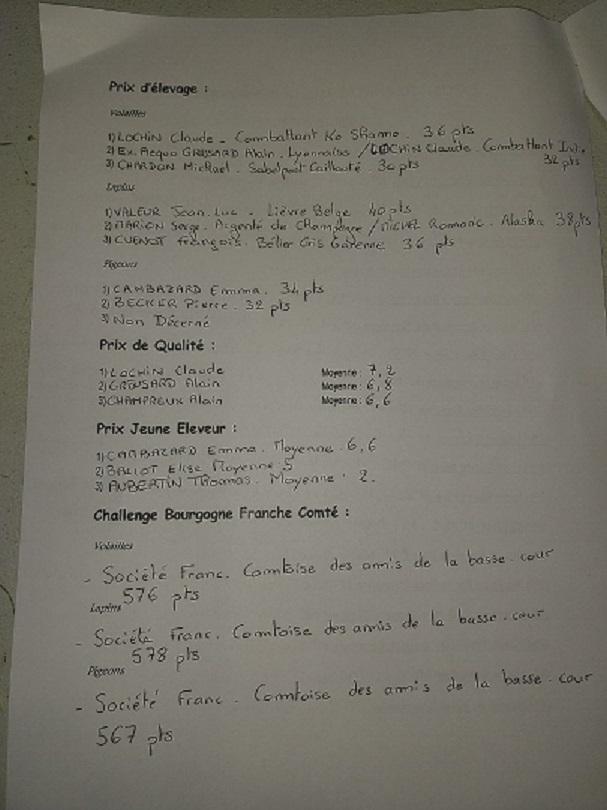 Prix d'élevage :
Volailles
1) LOCHIN Claude - Combattant Ko Shamo. 36 pts
2) Ex. Aequo GROSSARD Alain. Lyonnaise / LOCHIN Claude. Combattant
32 pts
3) CHARDON Mickael. Sabelpoot Caillouté. 30 pts
Lapins
1) VALEUR Jean-Luc - Lièvre Belge 40 pts
2) MARION Serge. Argenté de Champagne / MICHEL Romaric. Alaska 38 pts
3) CUENOT François. Bélier Gris Garenne 36 pts
Pigeons
1) CAMBAZARD Emma. 34 pts
2) BECKER Pierre. 32 pts
3) Non Décerné
Prix de Qualité :
1) LOCHIN Claude Moyenne : 7,2
2) GROSSARD Alain Moyenne : 6,8
3) CHAMPREUX Alain Moyenne : 6,6
Prix Jeune Eleveur :
1) CAMBAZARD Emma. Moyenne. 6,6
2) BALLOT Elise Moyenne 5
3) AUBERTIN Thomas. Moyenne 2.
Challenge Bourgogne Franche Comté :
Volailles
- Société Franc. Comtoise des amis de la basse-cour
576 pts
Lapins
- Société Franc. Comtoise des amis de la basse-cour
578 pts
Pigeons
- Société Franc. Comtoise des amis de la basse-cour
567 pts